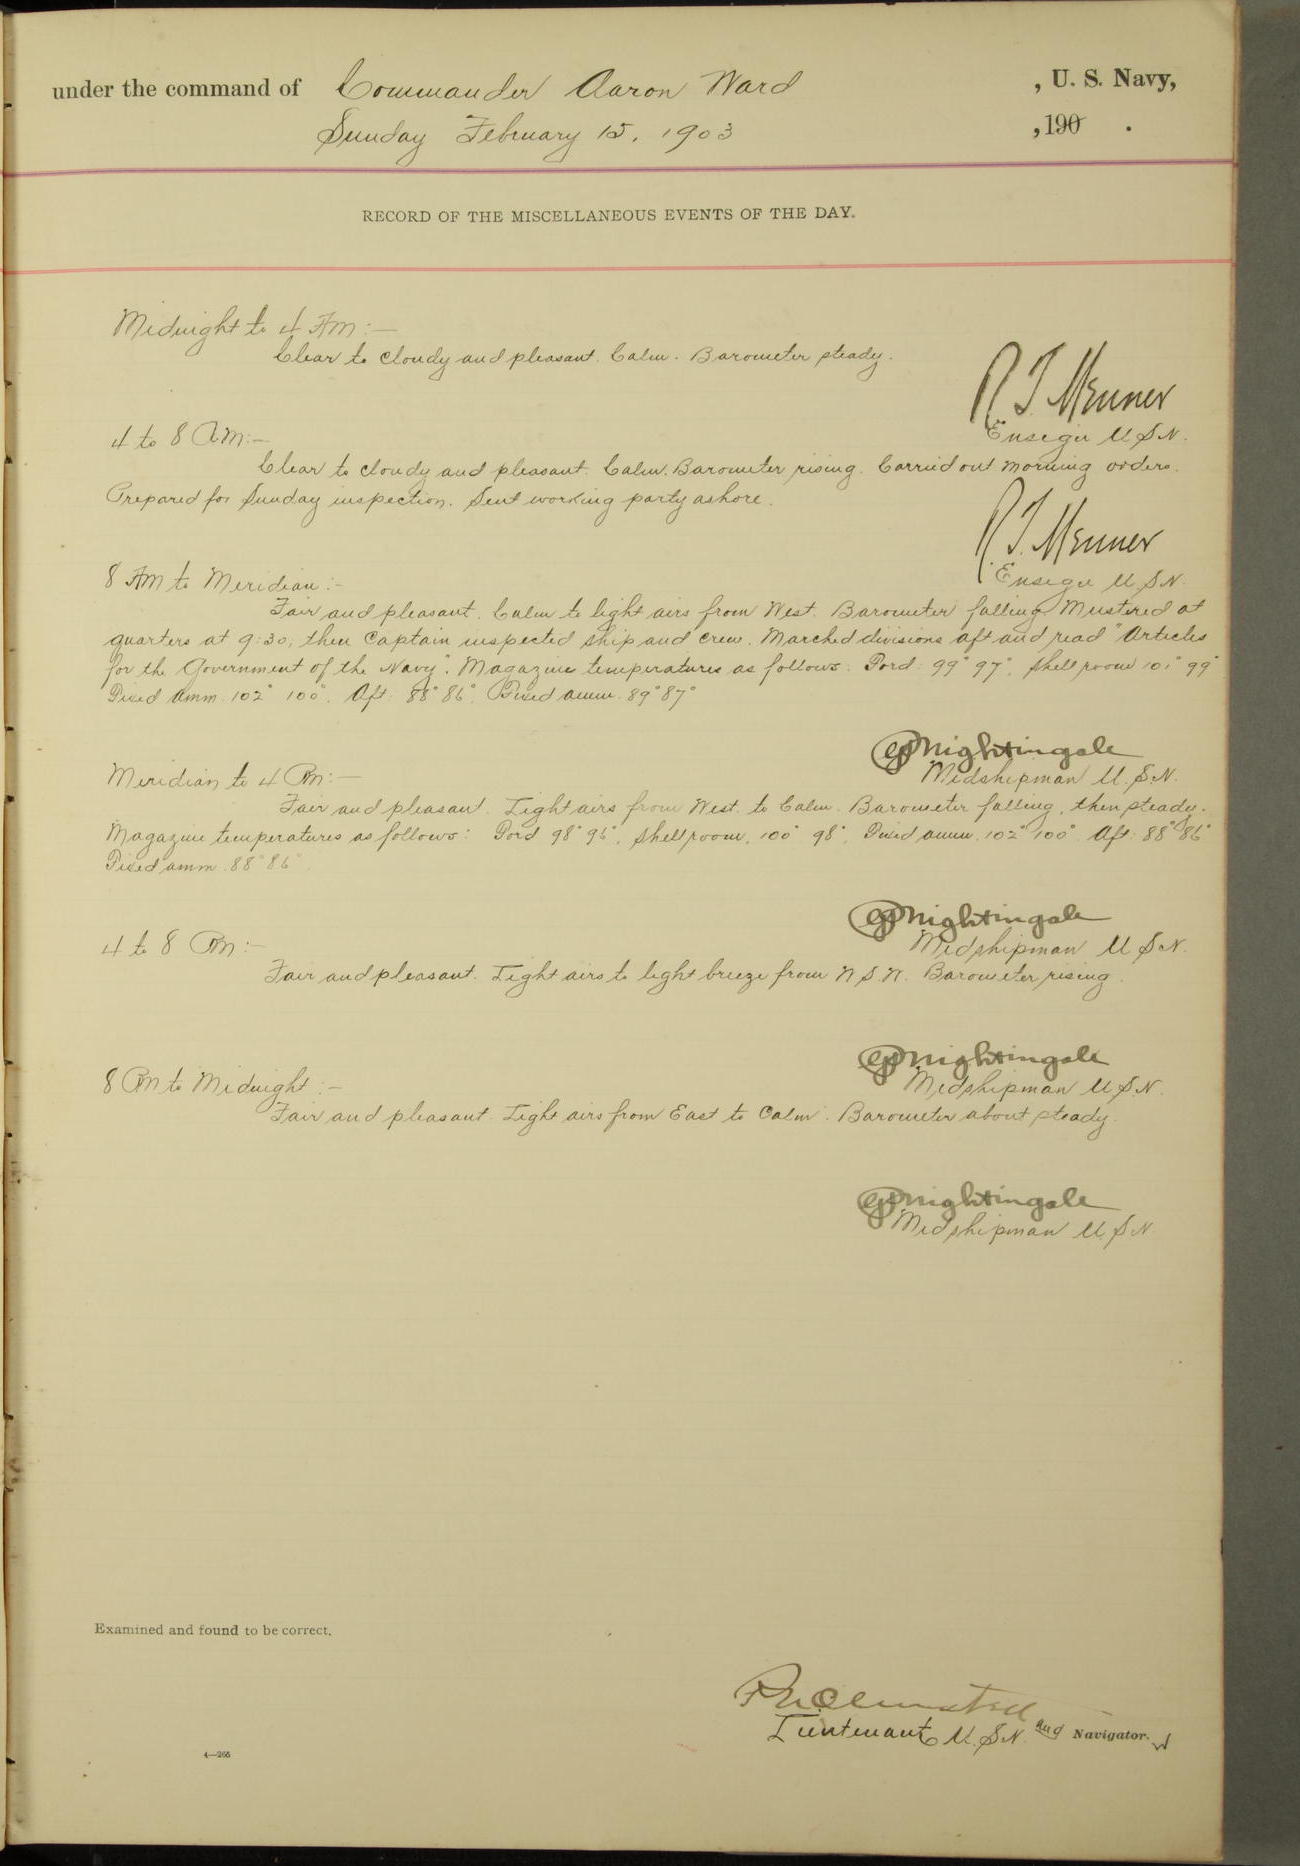 under the command of Commander Aaron Ward , U. S. Navy,
Sunday February 15, 1903 , 190 .
RECORD OF THE MISCELLANEOUS EVENTS OF THE DAY.
Midnight to 4 AM:—
Clear to cloudy and pleasant. Calm. Barometer steady.
R T Menner
Ensign U.S.N.
4 to 8 A.M:—
Clear to cloudy and pleasant. Calm. Barometer rising. Carried out morning orders.
Prepared for Sunday inspection. Sent working party ashore.
R T. Menner
Ensign U.S.N.
8 AM to Meridian:—
Fair and pleasant. Calm to light airs from West. Barometer falling. Mustered at
quarters at 9:30; then Captain inspected ship and crew. Marched divisions aft and read "Articles
for the Government of the Navy". Magazine temperatures as follows: Ford: 99° 97°. Shell room 101° 99°
Fixed amm. 102° 100°. Aft: 88° 86°. Fixed amm. 89° 87°
Nightingale
Midshipman U.S.N.
Meridian to 4 PM:—
Fair and pleasant. Light airs from West to Calm. Barometer falling, then steady.
Magazine temperatures as follows: Ford 98° 96°. Shell room, 100° 98°. Fixed amm. 102° 100°. Aft: 88° 86°
Fixed amm. 88° 86°.
Nightingale
Midshipman U.S.N.
4 to 8 PM:—
Fair and pleasant. Light airs to light breeze from Barometer rising.
Nightingale
Midshipman U.S.N.
8 PM to Midnight:—
Fair and pleasant. Light airs from East to Calm. Barometer about steady.
Nightingale
Midshipman U.S.N.
Examined and found to be correct.
Olmsted
Lieutenant U.S.N. and Navigator.
4—265